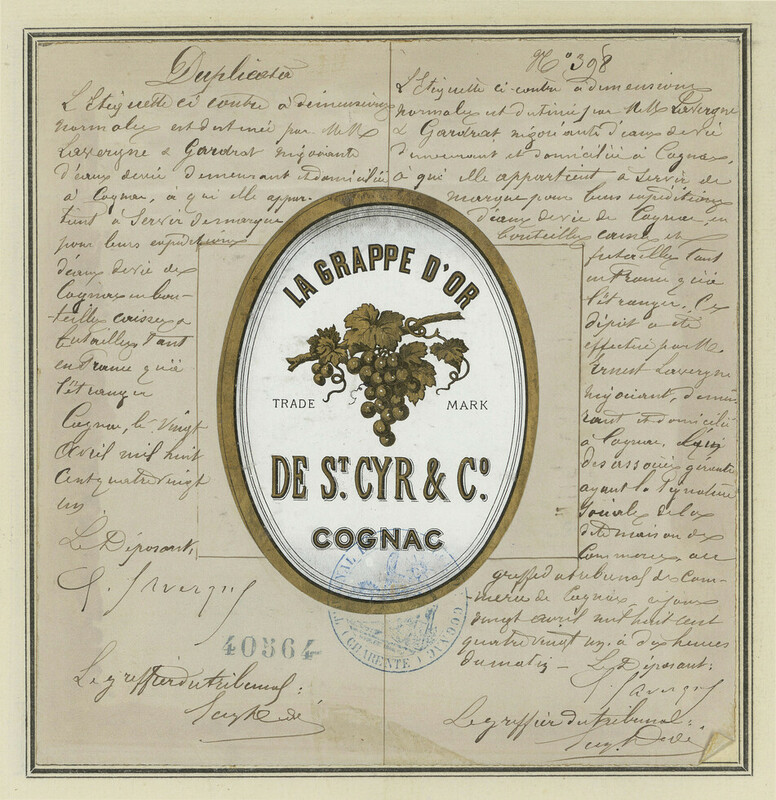 Duplicata
L'Etiquette ci contre à dimensions
normales est destinée par MM
Lavergne & Gardrat négociants
d'eaux de vie demeurant et domiciliés
à Cognac, à qui elle appar-
tient à Servir de marque
pour leurs expéditions
d'eaux de vie de
Cognac en bou-
-teilles caisses &
futailles tant
en France qu'à
l'étranger
Cognac, le vingt
avril mil huit
cent quatre vingt
un
Le Déposant,
E. Lavergne
40564
Le greffier du tribunal:
N° 398
L'Etiquette ci-contre à dimensions
normales est destinée par MM. Lavergne
& Gardrat négociants d'eaux de vie
demeurant et domiciliés à Cognac,
à qui elle appartient à servir de
marque pour leurs expéditions
d'eaux de vie de Cognac, en
bouteilles caisses et
futailles tant
en France qu'à
l'étranger. Ce
dépôt a été
effectué par M.
Ernest Lavergne
négociant, demeu-
rant et domicilié
à Cognac, l'un
des associés gérants
ayant la signature
sociale de la
dite maison de
Commerce, au
greffe du tribunal de Com-
merce de Cognac, cejour
vingt avril mil huit cent
quatre vingt un, à dix heures
du matin - Le Déposant:
E. Lavergne
Le greffier du tribunal:
LA GRAPPE D'OR
TRADE MARK
DE ST. CYR & CO.
COGNAC
TRIBUNAL
COGNAC
(CHARENTE)